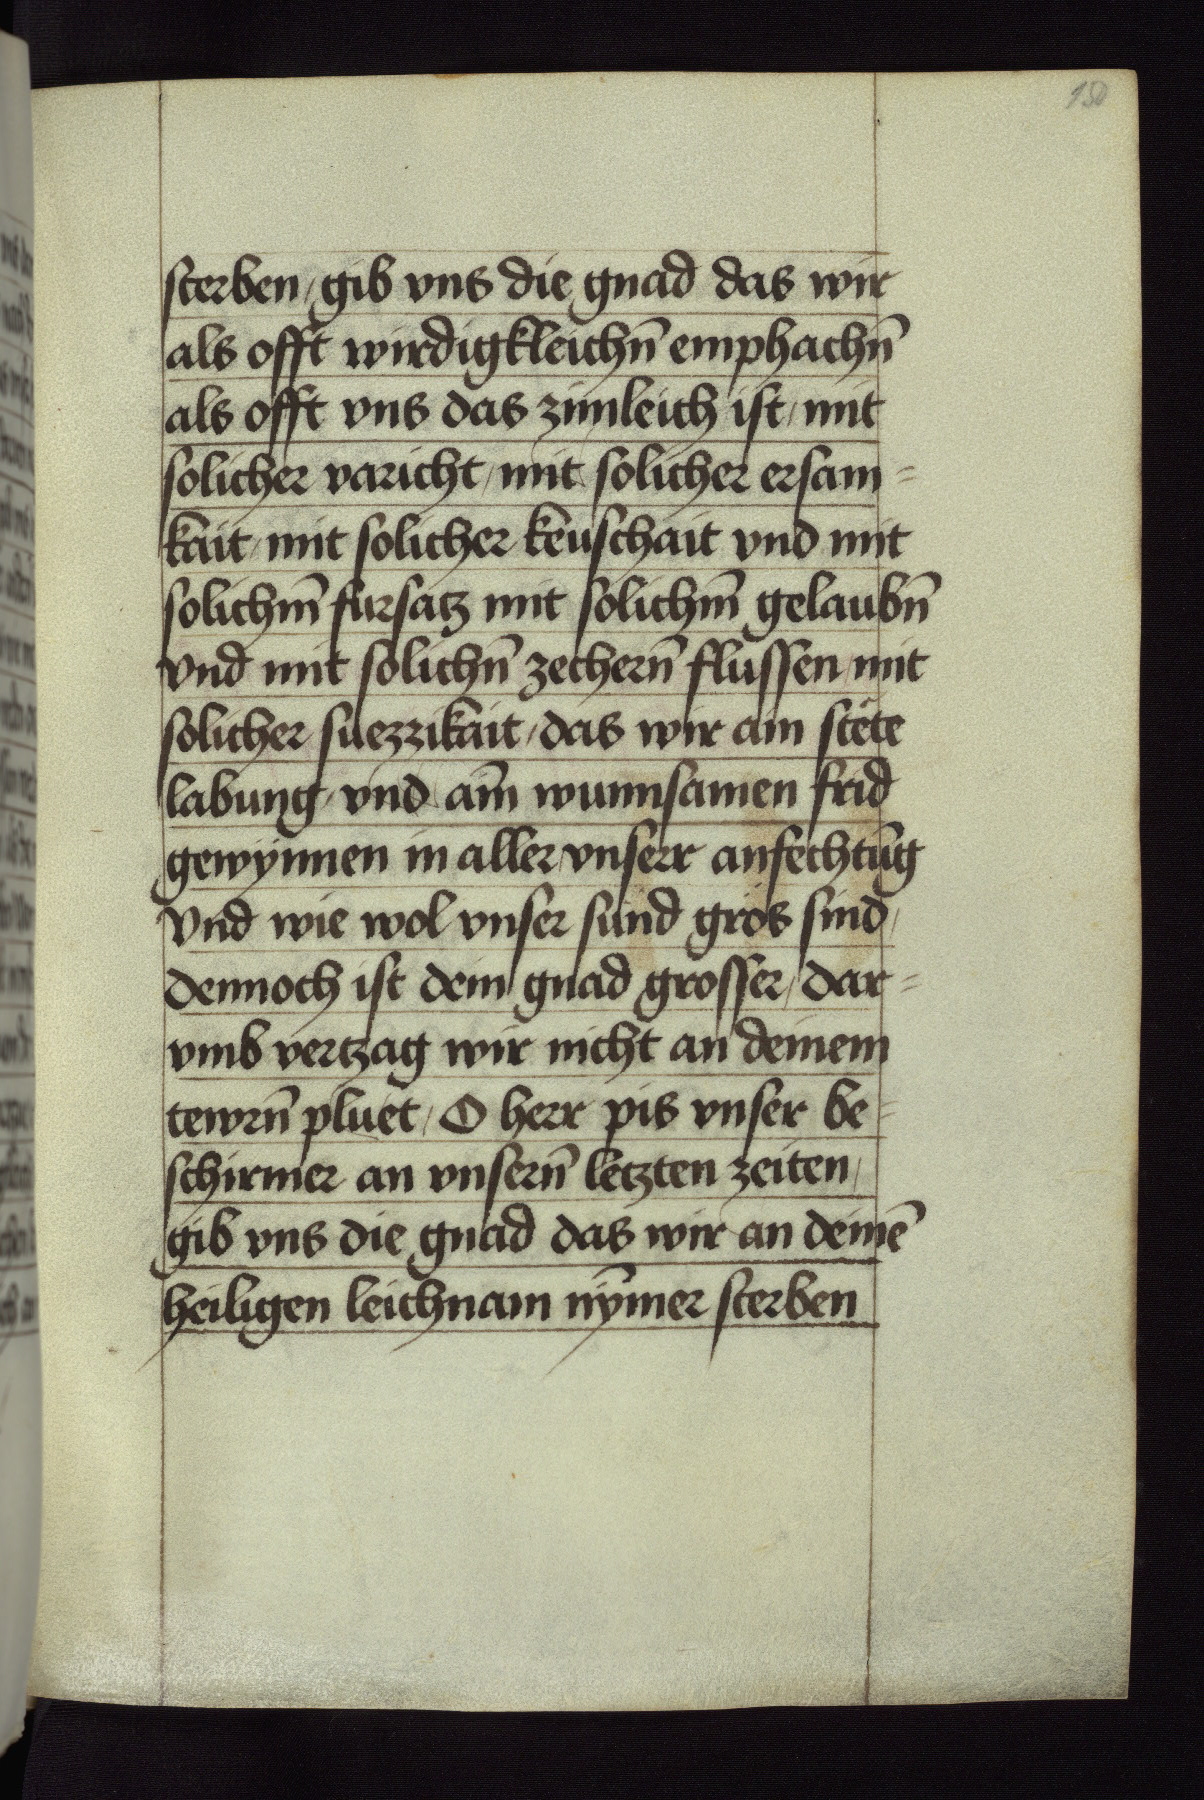 150
sterben / gib vns die gnad das wir
als offt wirdigkleichn̄ emphachn̄
als offt vns das zimleich ist / mit
solicher varicht / mit solicher ersam=
kait / mit solicher keuschait vnd mit
solichm̄ fursatz mit solichm̄ gelaubn̄
vnd mit solichn̄ zechern̄ flussen / mit
solicher suezzikait / das wir ain stête
labung / vnd aīn wunnsamen frid
gewynnen in aller vnserr anfechtūg
Vnd wie wol vnser sünd gros sind /
dennoch ist dein gnad grosser / dar=
vmb vertzag wir nicht an deinem
tewrn̄ pluet / O herr pis vnser be=
schirmer an vnsern̄ letzten zeiten /
gib vns die gnad das wir an deinē
heiligen leichnam nȳmer sterben